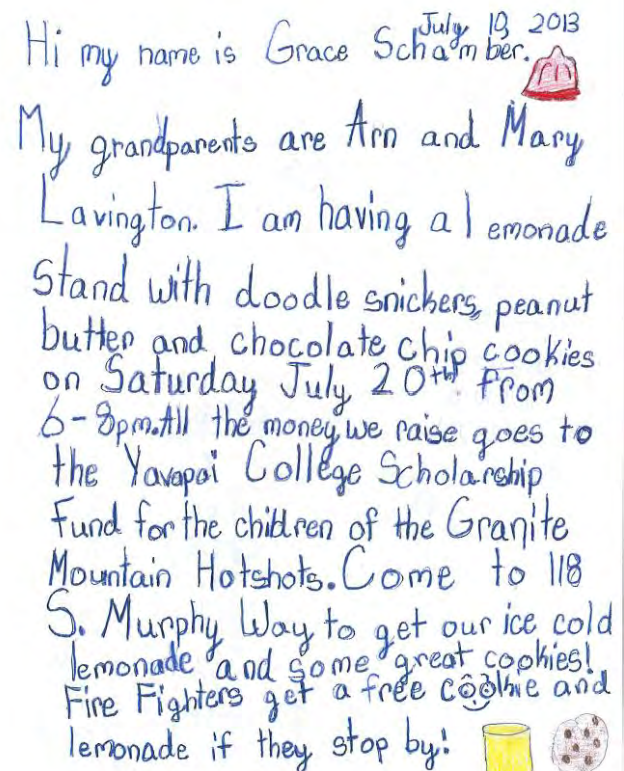 July 19, 2013
Hi my name is Grace Schamber.
My grandparents are Arn and Mary
Lavington. I am having a lemonade
Stand with doodle snickers, peanut
butter and chocolate chip cookies
on Saturday July 20th from
6-8pm. All the money we raise goes to
the Yavapai College Scholarship
Fund for the children of the Granite
Mountain Hotshots. Come to 118
S. Murphy Way to get our ice cold
lemonade and some great cookies!
Fire Fighters get a free cookie and
lemonade if they stop by!